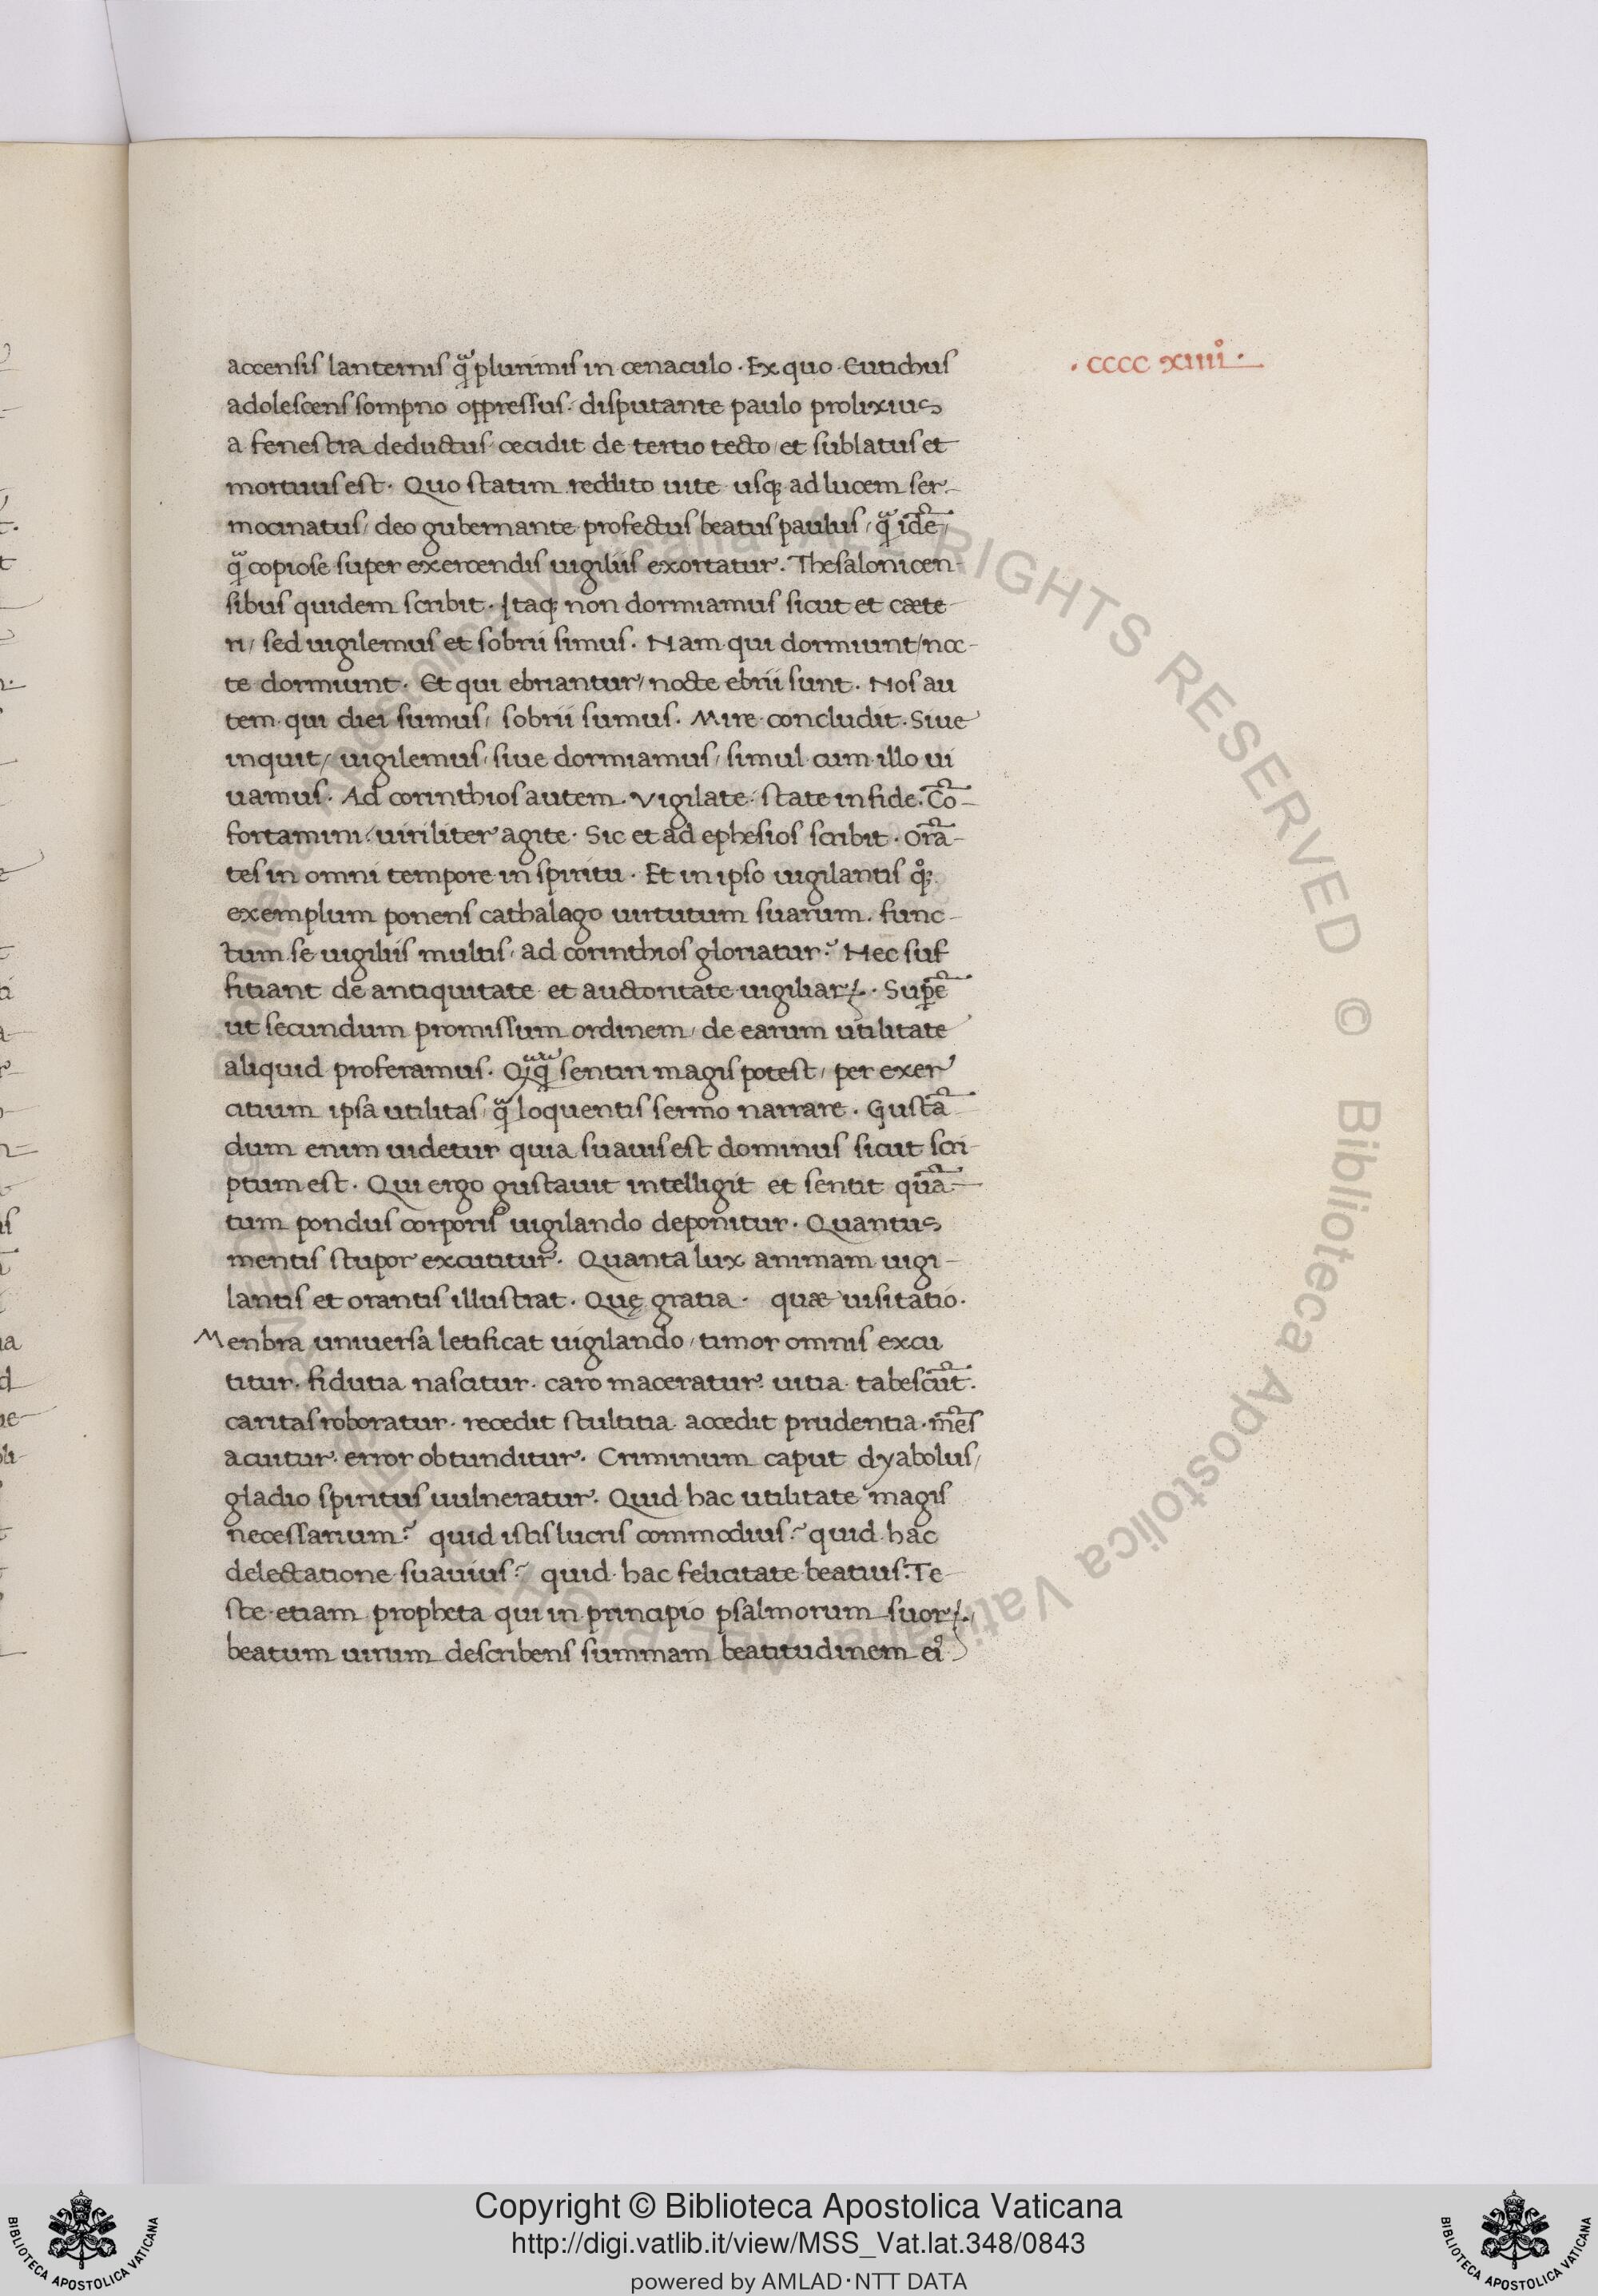 accensis lanternis qͣ̄plurimis in cenaculo · Ex quo Eutichus
· CCCC XIIIIͦ ·
adolescens sompno oppressus: disputante paulo prolixius
a fenestra deductus cecidit de tertio tecto / et sublatus et
mortuus est · Quo statim reddito uite usq; ad lucem ser-
mocinatus / deo gubernante profectus beatus paulus / qͣ̄ idē /
qͣ̄ copiose super exercendis uigiliis exortatur. Thesalonicen-
sibus quidem scribit · Itaq; non dormiamus sicut et caete-
ri / sed uigilemus et sobrii simus. Nam qui dormiunt / noc-
te dormiunt · Et qui ebriantur / nocte ebrii sunt · Nos au
tem qui diei sumus / sobrii sumus. Mire concludit. Siue
inquit / uigilemus / siue dormiamus / simul cum illo ui
uamus · Ad corinthios autem. Vigilate · state in fide. Cō-
fortamini / uiriliter agite · Sic et ad ephesios scribit · Orā-
tes in omni tempore in spiritu · Et in ipso uigilantis qͦ;
exemplum ponens cathalago uirtutum suarum. func-
tum se uigiliis multis / ad corinthios gloriatur? Hec suf
fitiant de antiquitate et auctoritate uigiliaꝝ. Suꝑē
ut secundum promissum ordinem / de earum utilitate
aliquid proferamus. Qͣ̄qͣ̄ sentiri magis potest / per exer
citium ipsa utilitas / qͣ̄ loquentis sermo narrare. Gustā
dum enim uidetur quia suauis est dominus sicut scri-
ptum est · Qui ergo gustauit intelligit et sentit quā-
tum pondus corporis uigilando deponitur · Quantus
mentis stupor excutitur. Quanta lux animam uigi-
lantis et orantis illustrat. Quę gratia · quae uisitatio.
Menbra uniuersa letificat uigilando / timor omnis excu
titur. fidutia nascitur. caro maceratur. uitia tabescūt.
caritas roboratur. recedit stultitia accedit prudentia. mēs
acuitur. error obtunditur. Criminum caput dyabolus /
gladio spiritus uulneratur. Quid hac utilitate magis
necessarium? quid istis lucris commodius? quid hac
delectatione suauius? quid hac felicitate beatius. Te-
ste etiam propheta qui in principio psalmorum suoꝝ /
beatum uirum describens summam beatitudinem eiꝰ
Copyright © Biblioteca Apostolica Vaticana
http://digi.vatlib.it/view/MSS_Vat.lat.348/0843
powered by AMLAD·NTT DATA